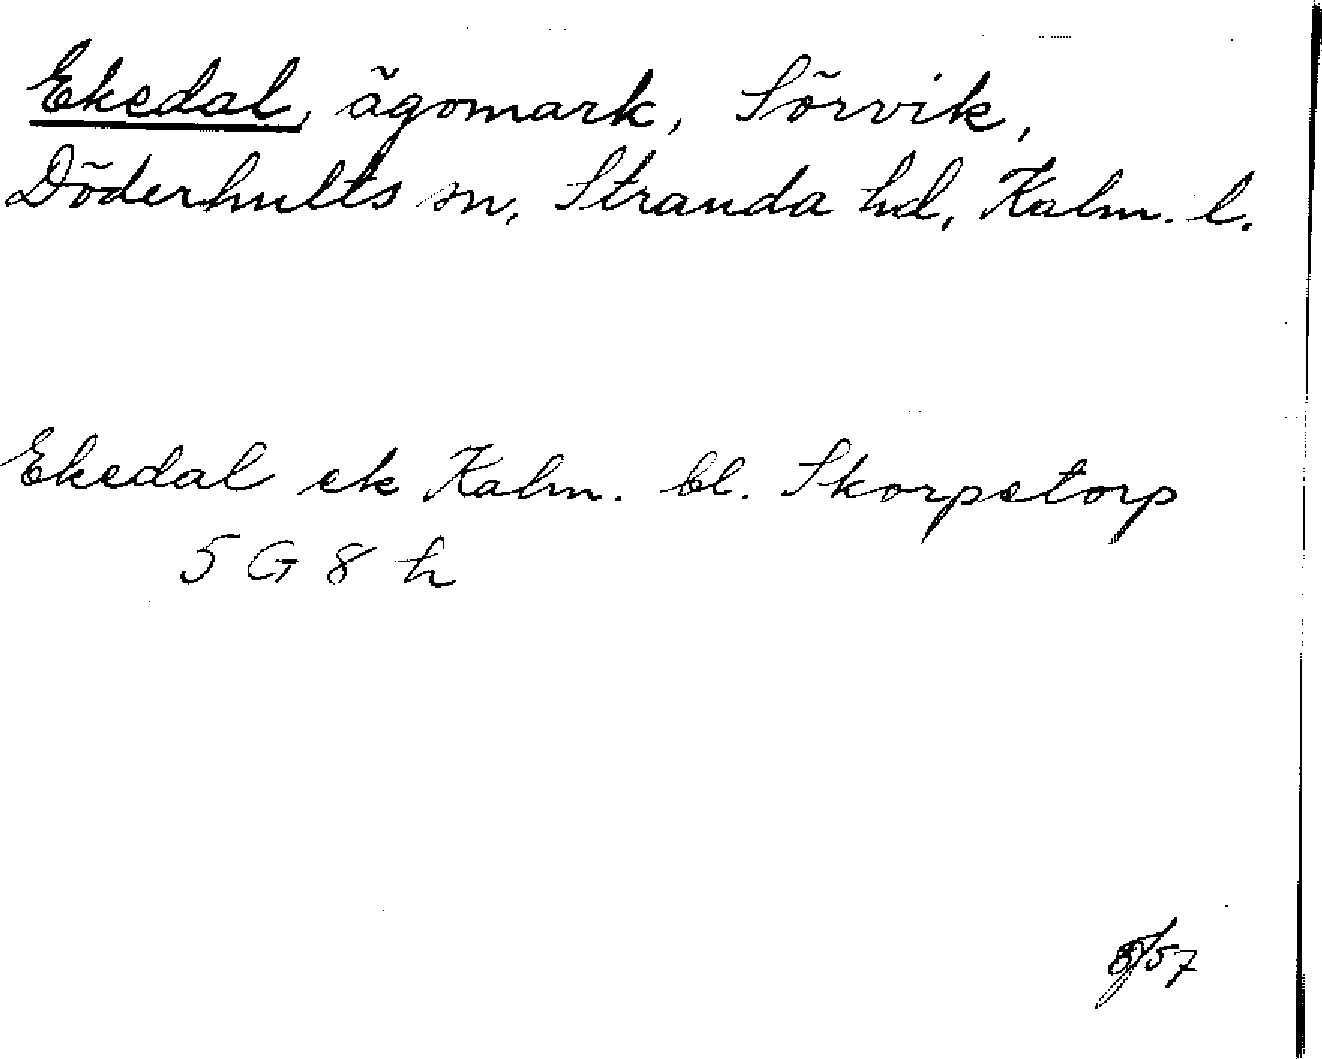 Ekedal, ägomark, Sörvik,
Döderhults sn, Stranda hd, Kalm. l.
Ekedal ek Kalm. bl. Skorpetorp
5 G 8 h